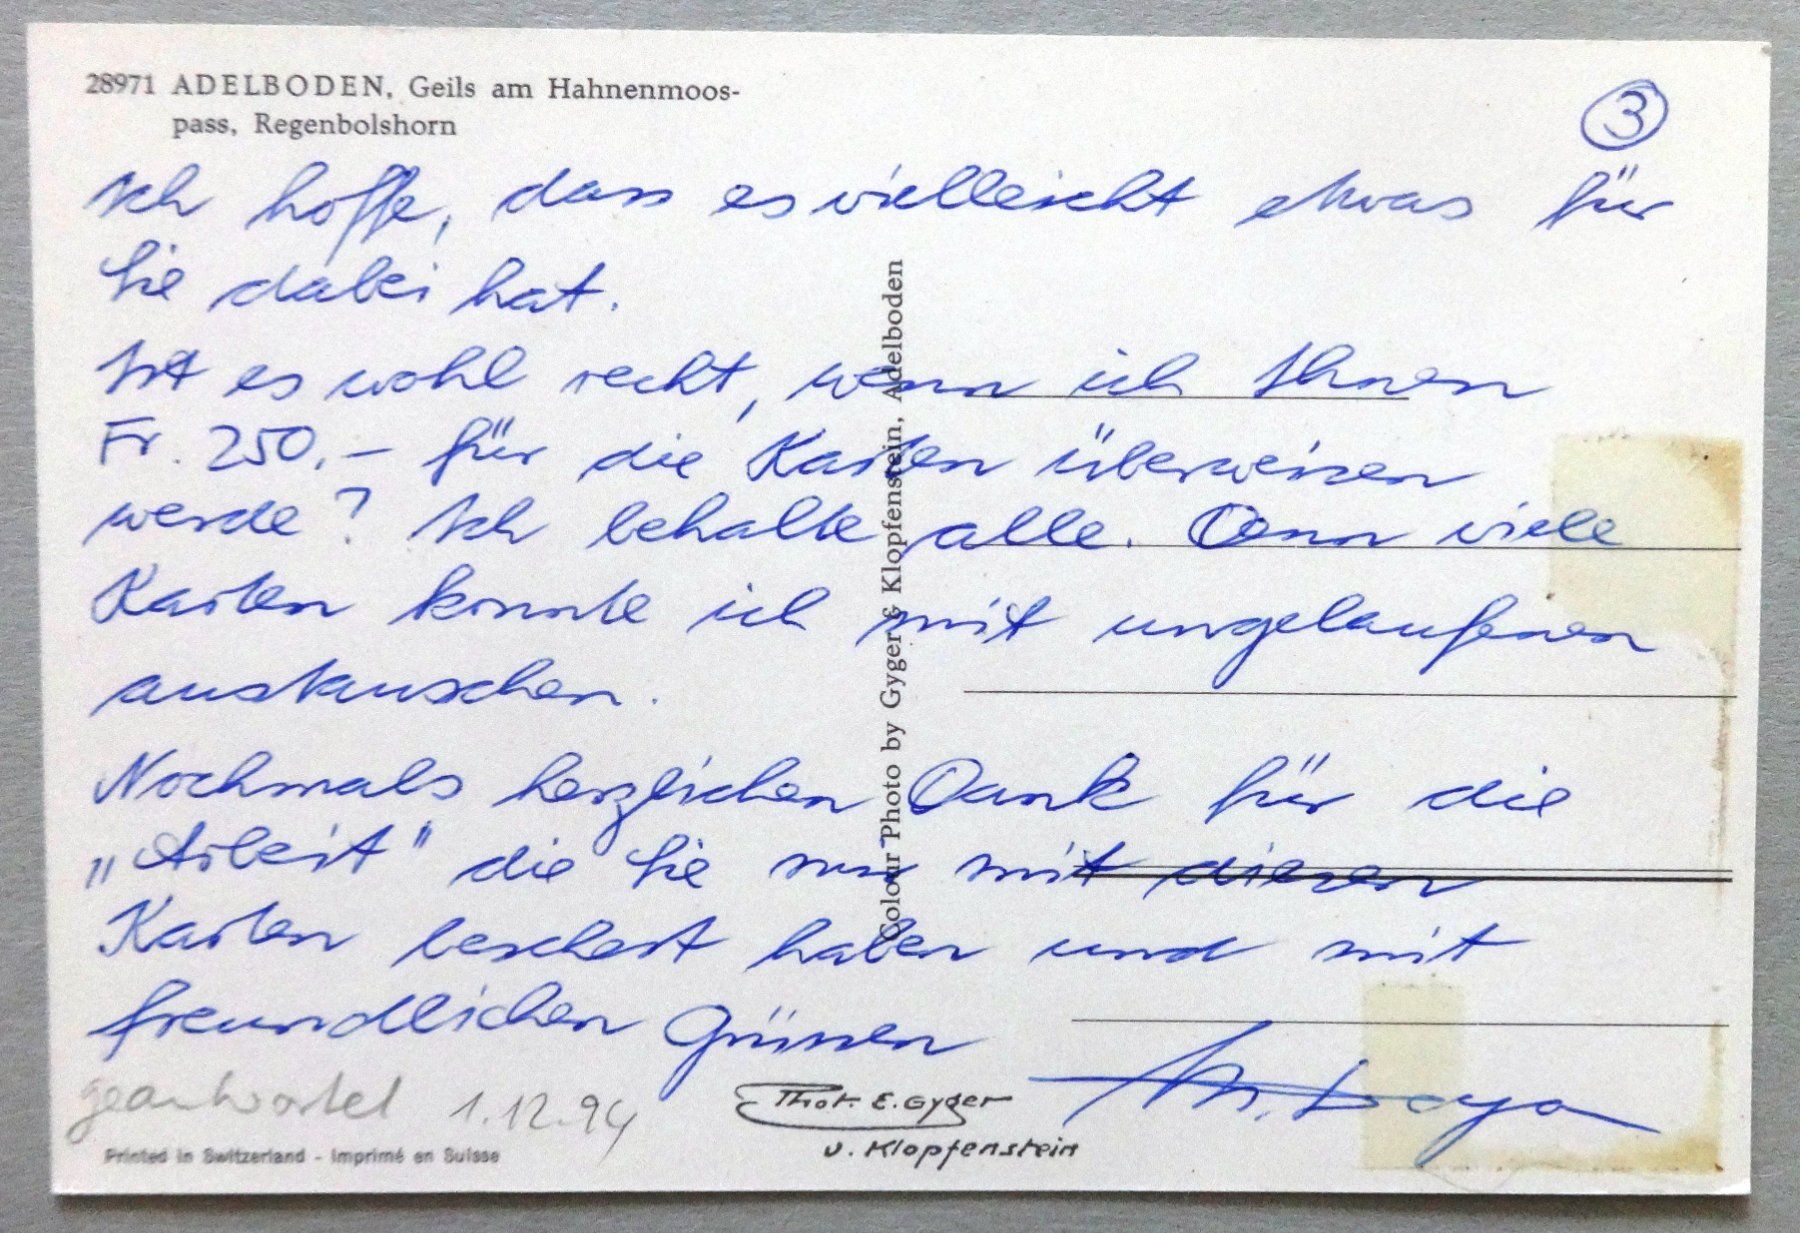 28971 ADELBODEN, Geils am Hahnenmoos-
pass, Regenbolshorn
3
Ich hoffe, dass es vielleicht etwas für
Sie dabei hat.
Ist es wohl recht, wenn ich Ihnen
Fr. 250.- für die Karten überweisen
werde? Ich behalte alle. Denn viele
Karten konnte ich mit ungelaufenen
austauschen.
Nochmals herzlichen Dank für die
„Arbeit" die Sie nun mit diesen
Karten beschert haben und mit
freundlichen Grüssen
geantwortet 1.12.94
Phot. E. Gyger
u. Klopfenstein
Printed in Switzerland - Imprimé en Suisse
Colour Photo by Gyger & Klopfenstein, Adelboden